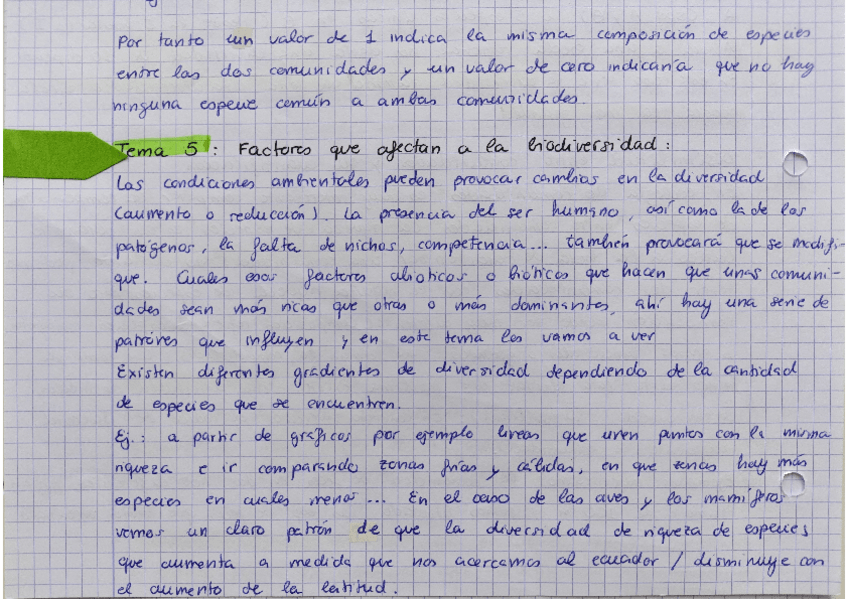 Por tanto un valor de 1 indica la misma composición de especies
entre las dos comunidades y un valor de cero indicaría que no hay
ninguna especie común a ambas comunidades.
Tema 5: Factores que afectan a la biodiversidad:
Las condiciones ambientales pueden provocar cambios en la diversidad
(aumento o reducción). La presencia del ser humano, así como la de los
patógenos, la falta de nichos, competencia... también provocará que se modifi-
que. Cuales esos factores abioticos o bióticos que hacen que unas comuni-
dades sean más ricas que otras o más dominantes, ahí hay una serie de
patrones que influyen y en este tema los vamos a ver
Existen diferentes gradientes de diversidad dependiendo de la cantidad
de especies que se encuentren.
Ej.: a partir de gráficos por ejemplo lineas que unen puntos con la misma
riqueza e ir comparando zonas frías y cálidas, en que zonas hay más
especies en cuales menos... En el caso de las aves y los mamíferos
vemos un claro patrón de que la diversidad de riqueza de especies
que aumenta a medida que nos acercamos al ecuador / disminuye con
el aumento de la latitud.